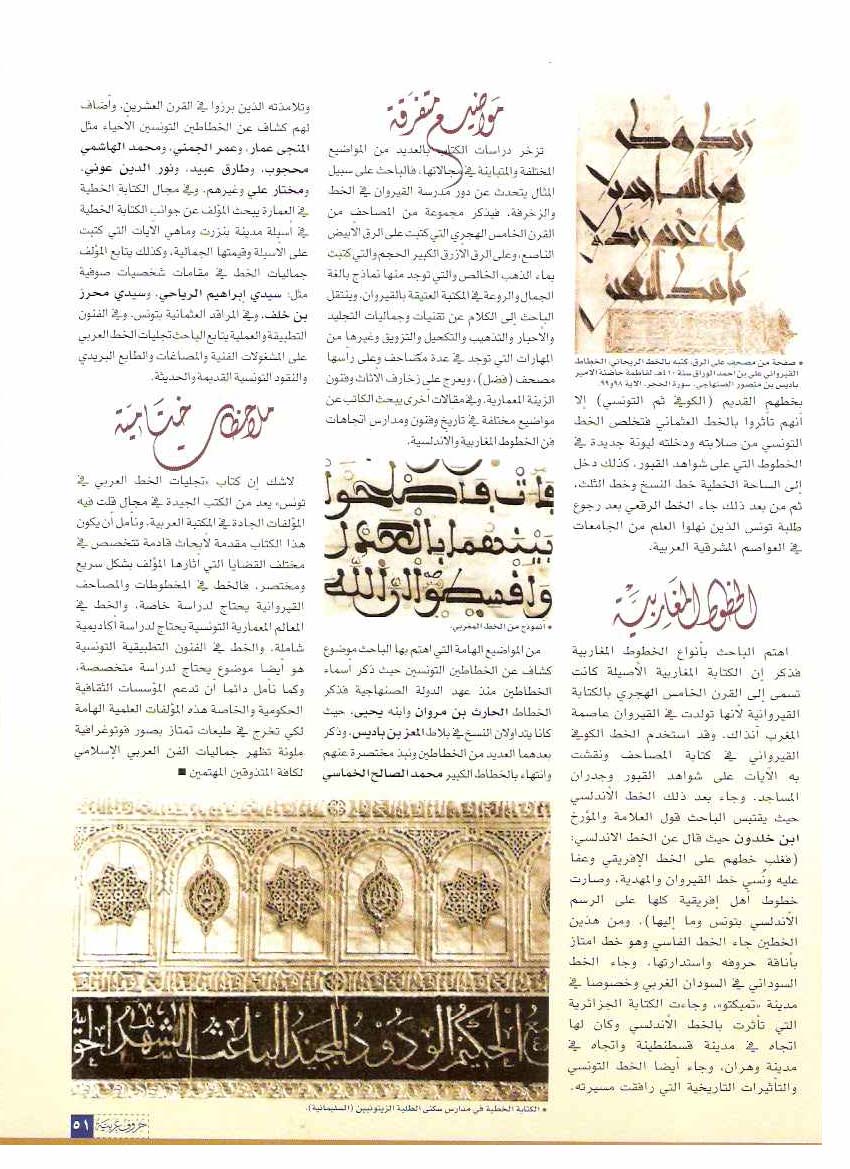 ربك وكن
من الساجدين
واعبد ربك
حتى يأتيك اليقين
• صفحة من مصحف على الرق، كتبه بالخط الريحاني، الخطاط
القيرواني علي بن احمد الوراق سنة ٤١٠هـ لفاطمة حاضنة الامير
باديس بن منصور الصنهاجي. سورة الحجر، الاية ٩٨و٩٩.
بخطهم القديم (الكوفي ثم التونسي) إلا
أنهم تأثروا بالخط العثماني فتخلص الخط
التونسي من صلابته ودخلته ليونة جديدة في
الخطوط التي على شواهد القبور، كذلك دخل
إلى الساحة الخطية خط النسخ وخط الثلث،
ثم من بعد ذلك جاء الخط الرقعي بعد رجوع
طلبة تونس الذين نهلوا العلم من الجامعات
في العواصم المشرقية العربية.
الخطوط المغاربية
اهتم الباحث بأنواع الخطوط المغاربية
فذكر إن الكتابة المغاربية الأصيلة كانت
تسمى إلى القرن الخامس الهجري بالكتابة
القيروانية لأنها تولدت في القيروان عاصمة
المغرب آنذاك. وقد استخدم الخط الكوفي
القيرواني في كتابة المصاحف ونقشت
به الآيات على شواهد القبور وجدران
المساجد. وجاء بعد ذلك الخط الأندلسي
حيث يقتبس الباحث قول العلامة والمؤرخ
ابن خلدون حيث قال عن الخط الاندلسي:
(فغلب خطهم على الخط الإفريقي وعفا
عليه ونُسي خط القيروان والمهدية، وصارت
خطوط أهل إفريقية كلها على الرسم
الأندلسي بتونس وما إليها). ومن هذين
الخطين جاء الخط الفاسي وهو خط امتاز
بأناقة حروفه واستدارتها، وجاء الخط
السوداني في السودان الغربي وخصوصا في
مدينة «تمبكتو»، وجاءت الكتابة الجزائرية
التي تأثرت بالخط الأندلسي وكان لها
اتجاه في مدينة قسطنطينة واتجاه في
مدينة وهران، وجاء أيضا الخط التونسي
والتأثيرات التاريخية التي رافقت مسيرته.
مواضيع متفرقة
تزخر دراسات الكتاب بالعديد من المواضيع
المختلفة والمتباينة في مجالاتها، فالباحث على سبيل
المثال يتحدث عن دور مدرسة القيروان في الخط
والزخرفة، فيذكر مجموعة من المصاحف من
القرن الخامس الهجري التي كتبت على الرق الأبيض
الناصع، وعلى الرق الأزرق الكبير الحجم والتي كتبت
بماء الذهب الخالص والتي توجد منها نماذج بالغة
الجمال والروعة في المكتبة العتيقة بالقيروان. وينتقل
الباحث إلى الكلام عن تقنيات وجماليات التجليد
والأحبار والتذهيب والتكحيل والتزويق وغيرها من
المهارات التي توجد في عدة مصاحف وعلى رأسها
مصحف (فضل)، ويعرج على زخارف الاثاث وفنون
الزينة المعمارية. وفي مقالات اخرى يبحث الكاتب عن
مواضيع مختلفة في تاريخ وفنون ومدارس اتجاهات
فن الخطوط المغاربية والاندلسية.
فاءت فأصلحوا
بينهما بالعدل
وأقسطوا إن الله
• انموذج من الخط المغربي.
من المواضيع الهامة التي اهتم بها الباحث موضوع
كشاف عن الخطاطين التونسين حيث ذكر أسماء
الخطاطين منذ عهد الدولة الصنهاجية فذكر
الخطاط الحارث بن مروان وابنه يحيى، حيث
كانا يتداولان النسخ في بلاط المعز بن باديس، وذكر
بعدهما العديد من الخطاطين ونبذ مختصرة عنهم
وانتهاء بالخطاط الكبير محمد الصالح الخماسي
وتلامذته الذين برزوا في القرن العشرين. وأضاف
لهم كشاف عن الخطاطين التونسين الأحياء مثل
المنجي عمار، وعمر الجمني، ومحمد الهاشمي
محجوب، وطارق عبيد، ونور الدين عوني،
ومختار علي وغيرهم، وفي مجال الكتابة الخطية
في العمارة يبحث المؤلف عن جوانب الكتابة الخطية
في أسبلة مدينة بنزرت وماهي الآيات التي كتبت
على الاسبلة وقيمتها الجمالية، وكذلك يتابع المؤلف
جماليات الخط في مقامات شخصيات صوفية
مثل: سيدي إبراهيم الرياحي، وسيدي محرز
بن خلف، وفي المراقد العثمانية بتونس. وفي الفنون
التطبيقة والعملية يتابع الباحث تجليات الخط العربي
على المشغولات الفنية والمصاغات والطابع البريدي
والنقود التونسية القديمة والحديثة.
ملاحظات ختامية
لاشك إن كتاب «تجليات الخط العربي في
تونس» يعد من الكتب الجيدة في مجال قلت فيه
المؤلفات الجادة في المكتبة العربية، ونأمل أن يكون
هذا الكتاب مقدمة لأبحاث قادمة تتخصص في
مختلف القضايا التي اثارها المؤلف بشكل سريع
ومختصر، فالخط في المخطوطات والمصاحف
القيروانية يحتاج لدراسة خاصة، والخط في
المعالم المعمارية التونسية يحتاج لدراسة أكاديمية
شاملة، والخط في الفنون التطبيقية التونسية
هو أيضا موضوع يحتاج لدراسة متخصصة،
وكما نأمل دائما أن تدعم المؤسسات الثقافية
الحكومية والخاصة هذه المؤلفات العلمية الهامة
لكي تخرج في طبعات تمتاز بصور فوتوغرافية
ملونة تظهر جماليات الفن العربي الإسلامي
لكافة المتذوقين المهتمين ■
الحكيم الودود المجيد الباعث الشهيد الحق
• الكتابة الخطية في مدارس سكنى الطلبة الزيتونيين (السليمانية).
حروف عربية
٥١